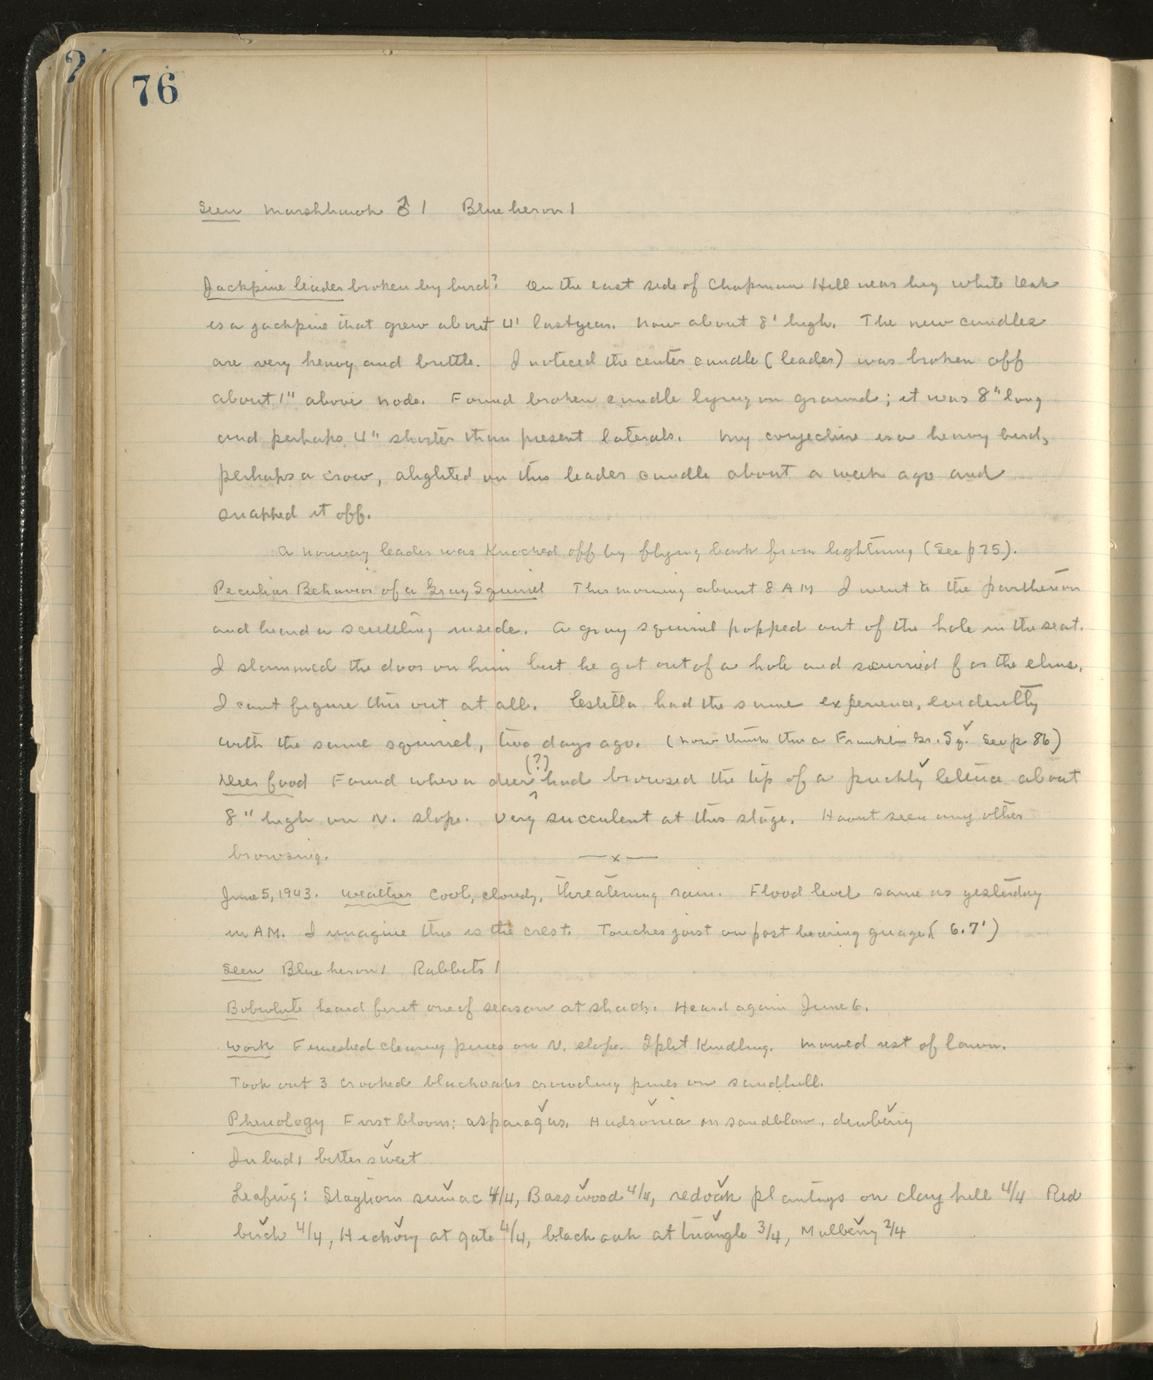 76
Seen Marshhawk ♂ 1 Blue heron 1
Jackpine leader broken by bird? On the east side of Chapman Hill near big white oak
is a jackpine that grew about 4' last year. Now about 8' high. The new candles
are very heavy and brittle. I noticed the center candle (leader) was broken off
about 1" above node. Found broken candle lying on ground; it was 8" long
and perhaps 4" shorter than present laterals. My conjecture is a heavy bird,
perhaps a crow, alighted on this leader candle about a week ago and
snapped it off.
A norway leader was knocked off by flying bark from lightning (See p 75).
Peculiar Behavior of a Gray Squirrel This morning about 8 AM I went to the parthenon
and heard a scuttling inside. A gray squirrel popped out of the hole in the seat.
I slammed the door on him but he got out of a hole and scurried for the elms.
I cant figure this out at all. Estella had the same experience, evidently
with the same squirrel, two days ago. (now think this a Franklin Gr. Sq. See p 86)
Deer food Found where a deer (?) had browsed the tip of a prickly lettuce about
8" high on N. slope. Very succulent at this stage. Havnt seen any other
browsing. —x—
June 5, 1943. Weather Cool, cloudy, threatening rain. Flood level same as yesterday
in AM. I imagine this is the crest. Touches joist on post bearing guage (6.7')
Seen Blue heron 1 Rabbits 1
Bobwhite heard first one of season at shack. Heard again June 6.
Work Finished clearing pines on N. slope. Split kindling. Mowed rest of lawn.
Took out 3 crooked blackoaks crowding pines on sandhill.
Phenology First bloom: asparagus, Hudsonia on sandblow, dewberry
In bud: bittersweet
Leafing: Staghorn sumac 4/4, Basswood 4/4, redoak plantings on clay hill 4/4 Red
birch 4/4, Hickory at gate 4/4, black oak at triangle 3/4, Mulberry 2/4